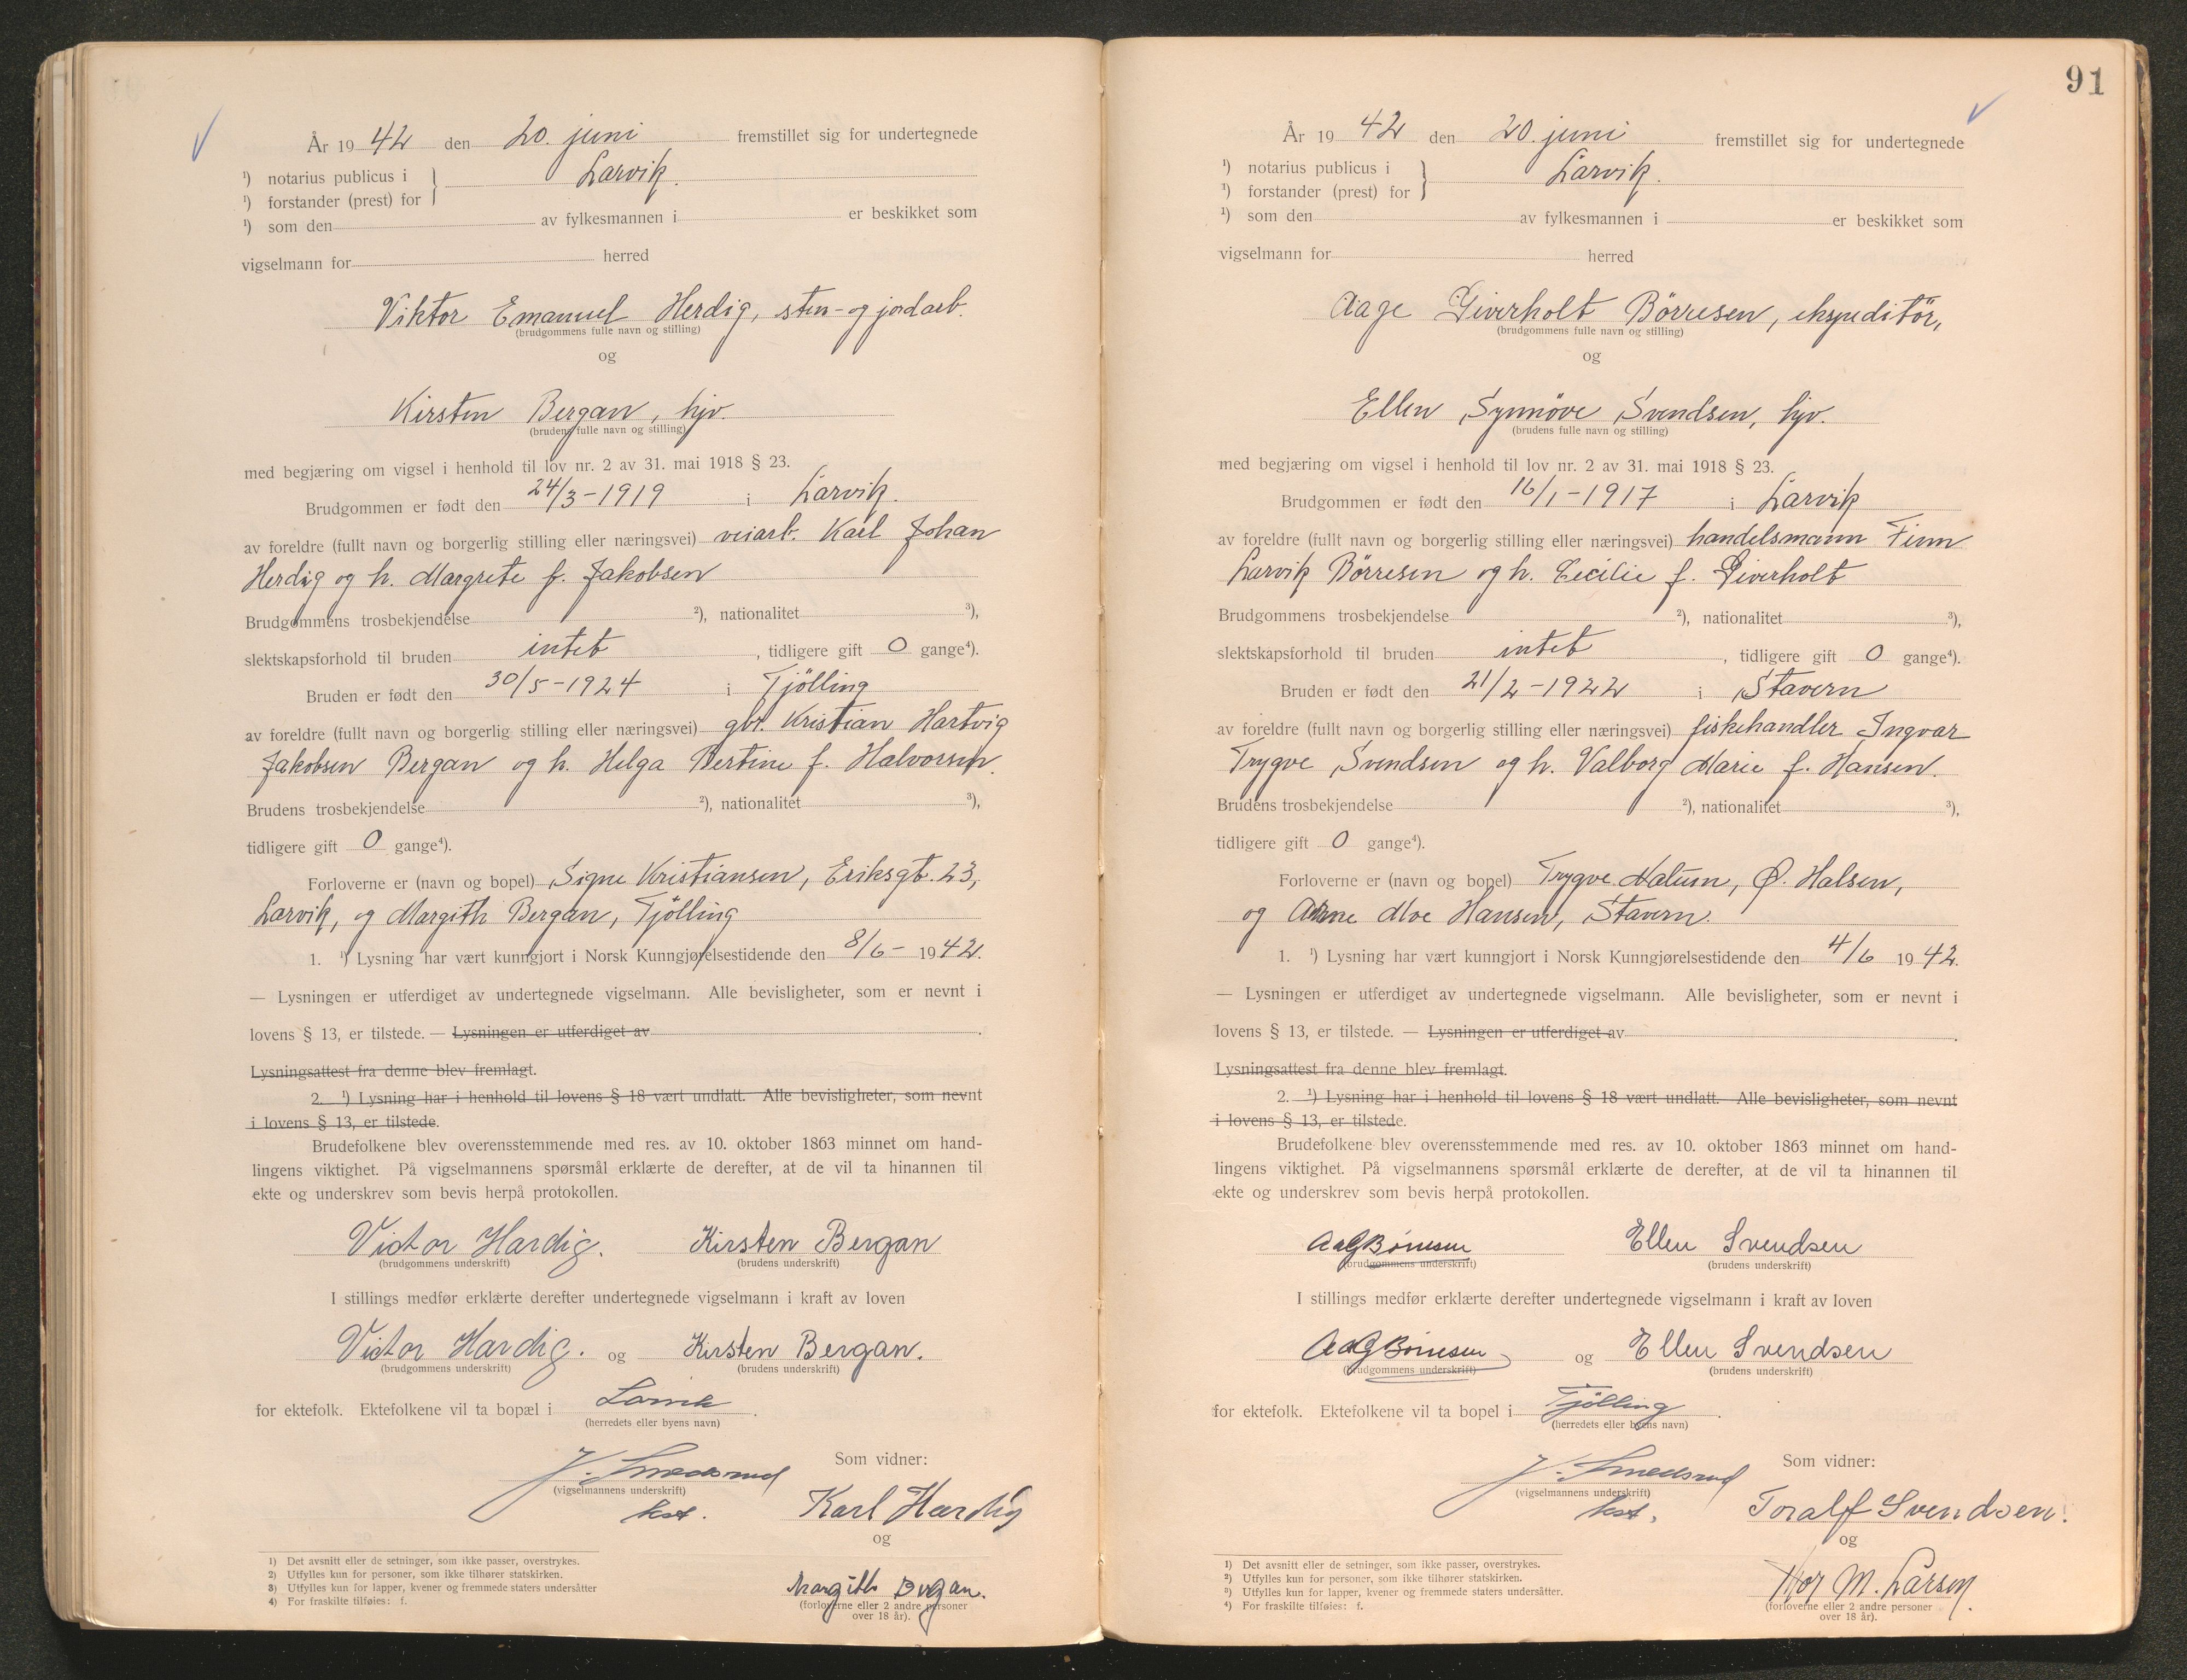 År 1942 den 20. juni fremstillet sig for undertegnede
¹) notarius publicus i } Larvik.
¹) forstander (prest) for
¹) som den av fylkesmannen i er beskikket som
vigselmann for herred
Viktor Emanuel Herdig, sten- og jordarb.
(brudgommens fulle navn og stilling)
og
Kirsten Bergan, hjv.
(brudens fulle navn og stilling)
med begjæring om vigsel i henhold til lov nr. 2 av 31. mai 1918 § 23.
Brudgommen er født den 24/3-1919 i Larvik.
av foreldre (fullt navn og borgerlig stilling eller næringsvei) veiarb. Karl Johan
Herdig og h. Margrete f. Jakobsen
Brudgommens trosbekjendelse ²), nationalitet ³),
slektskapsforhold til bruden intet, tidligere gift 0 gange⁴).
Bruden er født den 30/5-1924 i Tjölling
av foreldre (fullt navn og borgerlig stilling eller næringsvei) gbr. Kristian Hartvig
Jakobsen Bergan og h. Helga Bertine f. Halvorsen.
Brudens trosbekjendelse ²), nationalitet ³),
tidligere gift 0 gange⁴).
Forloverne er (navn og bopel) Signe Kristiansen, Eriksgt. 23,
Larvik, og Margith Bergan, Tjölling
1. ¹) Lysning har vært kunngjort i Norsk Kunngjørelsestidende den 8/6- 1942.
— Lysningen er utferdiget av undertegnede vigselmann. Alle bevisligheter, som er nevnt i
lovens § 13, er tilstede. — Lysningen er utferdiget av .
Lysningsattest fra denne blev fremlagt.
2. ¹) Lysning har i henhold til lovens § 18 vært undlatt. Alle bevisligheter, som nevnt
i lovens § 13, er tilstede.
Brudefolkene blev overensstemmende med res. av 10. oktober 1863 minnet om hand-
lingens viktighet. På vigselmannens spørsmål erklærte de derefter, at de vil ta hinannen til
ekte og underskrev som bevis herpå protokollen.
Victor Hardig. Kirsten Bergan
(brudgommens underskrift) (brudens underskrift)
I stillings medfør erklærte derefter undertegnede vigselmann i kraft av loven
Victor Hardig. og Kirsten Bergan.
(brudgommens underskrift) (brudens underskrift)
for ektefolk. Ektefolkene vil ta bopæl i Larvik.
(herredets eller byens navn)
Som vidner:
J. Smedsrud
(vigselmannens underskrift)
kst.
Karl Hardig
og
Margith Bergan.
(forloverne eller 2 andre personer
over 18 år).
1) Det avsnitt eller de setninger, som ikke passer, overstrykes.
2) Utfylles kun for personer, som ikke tilhører statskirken.
3) Utfylles kun for lapper, kvener og fremmede staters undersåtter
4) For fraskilte tilføies: f.
91
År 1942 den 20. juni fremstillet sig for undertegnede
¹) notarius publicus i } Larvik.
¹) forstander (prest) for
¹) som den av fylkesmannen i er beskikket som
vigselmann for herred
Aage Giverholt Börresen, ekspeditör,
(brudgommens fulle navn og stilling)
og
Ellen Synnöve Svendsen, hjv.
(brudens fulle navn og stilling)
med begjæring om vigsel i henhold til lov nr. 2 av 31. mai 1918 § 23.
Brudgommen er født den 16/1-1917 i Larvik
av foreldre (fullt navn og borgerlig stilling eller næringsvei) handelsmann Finn
Larvik Börresen og h. Cecilie f. Giverholt
Brudgommens trosbekjendelse ²), nationalitet ³),
slektskapsforhold til bruden intet, tidligere gift 0 gange⁴).
Bruden er født den 21/2-1922 i Stavern
av foreldre (fullt navn og borgerlig stilling eller næringsvei) fiskehandler Ingvar
Trygve Svendsen og h. Valborg Marie f. Hansen.
Brudens trosbekjendelse ²), nationalitet ³),
tidligere gift 0 gange⁴).
Forloverne er (navn og bopel) Trygve Nalum, Ø. Halsen,
og Arne Moe Hansen, Stavern.
1. ¹) Lysning har vært kunngjort i Norsk Kunngjørelsestidende den 4/6 1942.
— Lysningen er utferdiget av undertegnede vigselmann. Alle bevisligheter, som er nevnt i
lovens § 13, er tilstede. — Lysningen er utferdiget av .
Lysningsattest fra denne blev fremlagt.
2. ¹) Lysning har i henhold til lovens § 18 vært undlatt. Alle bevisligheter, som nevnt
i lovens § 13, er tilstede.
Brudefolkene blev overensstemmende med res. av 10. oktober 1863 minnet om hand-
lingens viktighet. På vigselmannens spørsmål erklærte de derefter, at de vil ta hinannen til
ekte og underskrev som bevis herpå protokollen.
AaGBörresen Ellen Svendsen
(brudgommens underskrift) (brudens underskrift)
I stillings medfør erklærte derefter undertegnede vigselmann i kraft av loven
AaGBörresen og Ellen Svendsen
(brudgommens underskrift) (brudens underskrift)
for ektefolk. Ektefolkene vil ta bopel i Tjölling.
(herredets eller byens navn)
Som vidner:
J. Smedsrud
(vigselmannens underskrift)
kst.
Toralf Svendsen.
og
Thor M. Larsen.
(forloverne eller 2 andre personer
over 18 år).
1) Det avsnitt eller de setninger, som ikke passer, overstrykes.
2) Utfylles kun for personer, som ikke tilhører statskirken.
3) Utfylles kun for lapper, kvener og fremmede staters undersåtter.
4) For fraskilte tilføies: f.